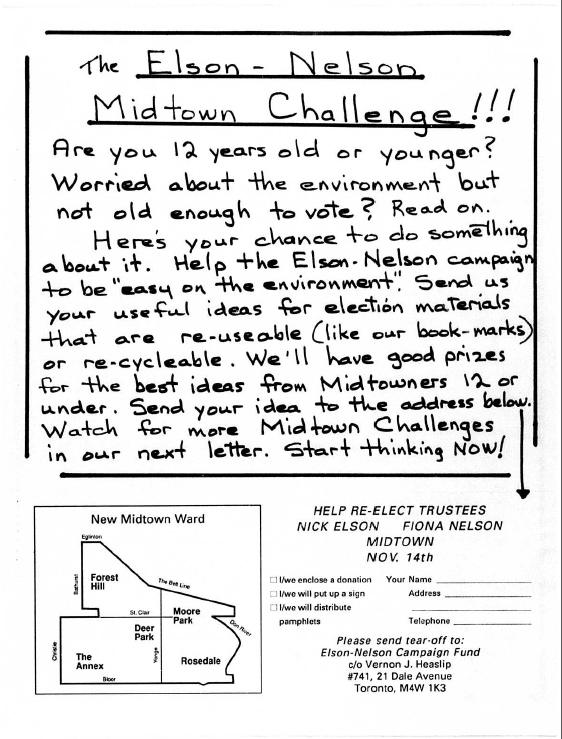 The Elson - Nelson
Midtown Challenge!!!
Are you 12 years old or younger?
Worried about the environment but
not old enough to vote? Read on.
Here's your chance to do something
about it. Help the Elson-Nelson campaign
to be "easy on the environment". Send us
your useful ideas for election materials
that are re-useable (like our book-marks)
or re-cycleable. We'll have good prizes
for the best ideas from Midtowners 12 or
under. Send your idea to the address below.
Watch for more Midtown Challenges
in our next letter. Start thinking NOW!
New Midtown Ward
Eglinton
Bathurst
Forest
Hill
The Belt Line
St. Clair
Moore
Park
Don River
Deer
Park
Christie
The
Annex
Yonge
Rosedale
Bloor
HELP RE-ELECT TRUSTEES
NICK ELSON FIONA NELSON
MIDTOWN
NOV. 14th
I/we enclose a donation Your Name
I/we will put up a sign Address
I/we will distribute
pamphlets Telephone
Please send tear-off to:
Elson-Nelson Campaign Fund
c/o Vernon J. Heaslip
#741, 21 Dale Avenue
Toronto, M4W 1K3